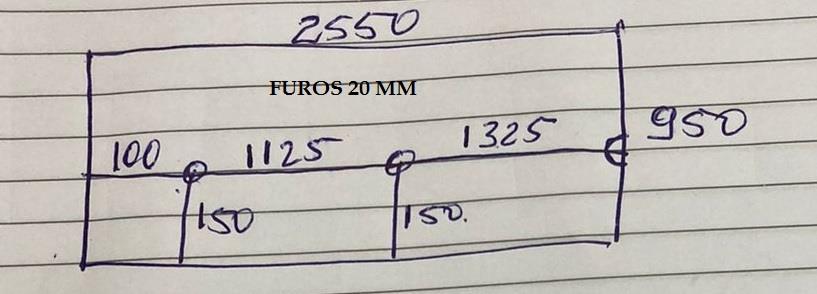 2550
FUROS 20 MM
100 1125 1325 950
150 150.